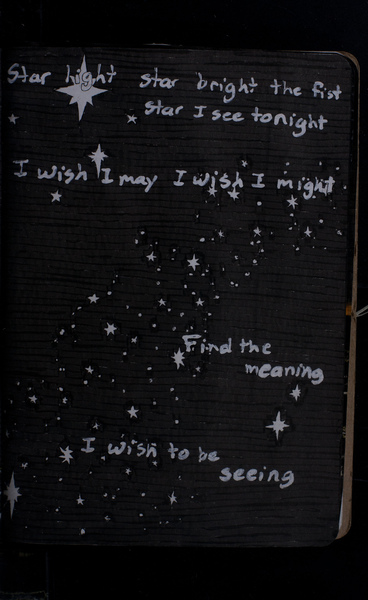 Star hight star bright the fist
star I see tonight
I wish I may I wish I might
Find the
meaning
I wish to be
seeing